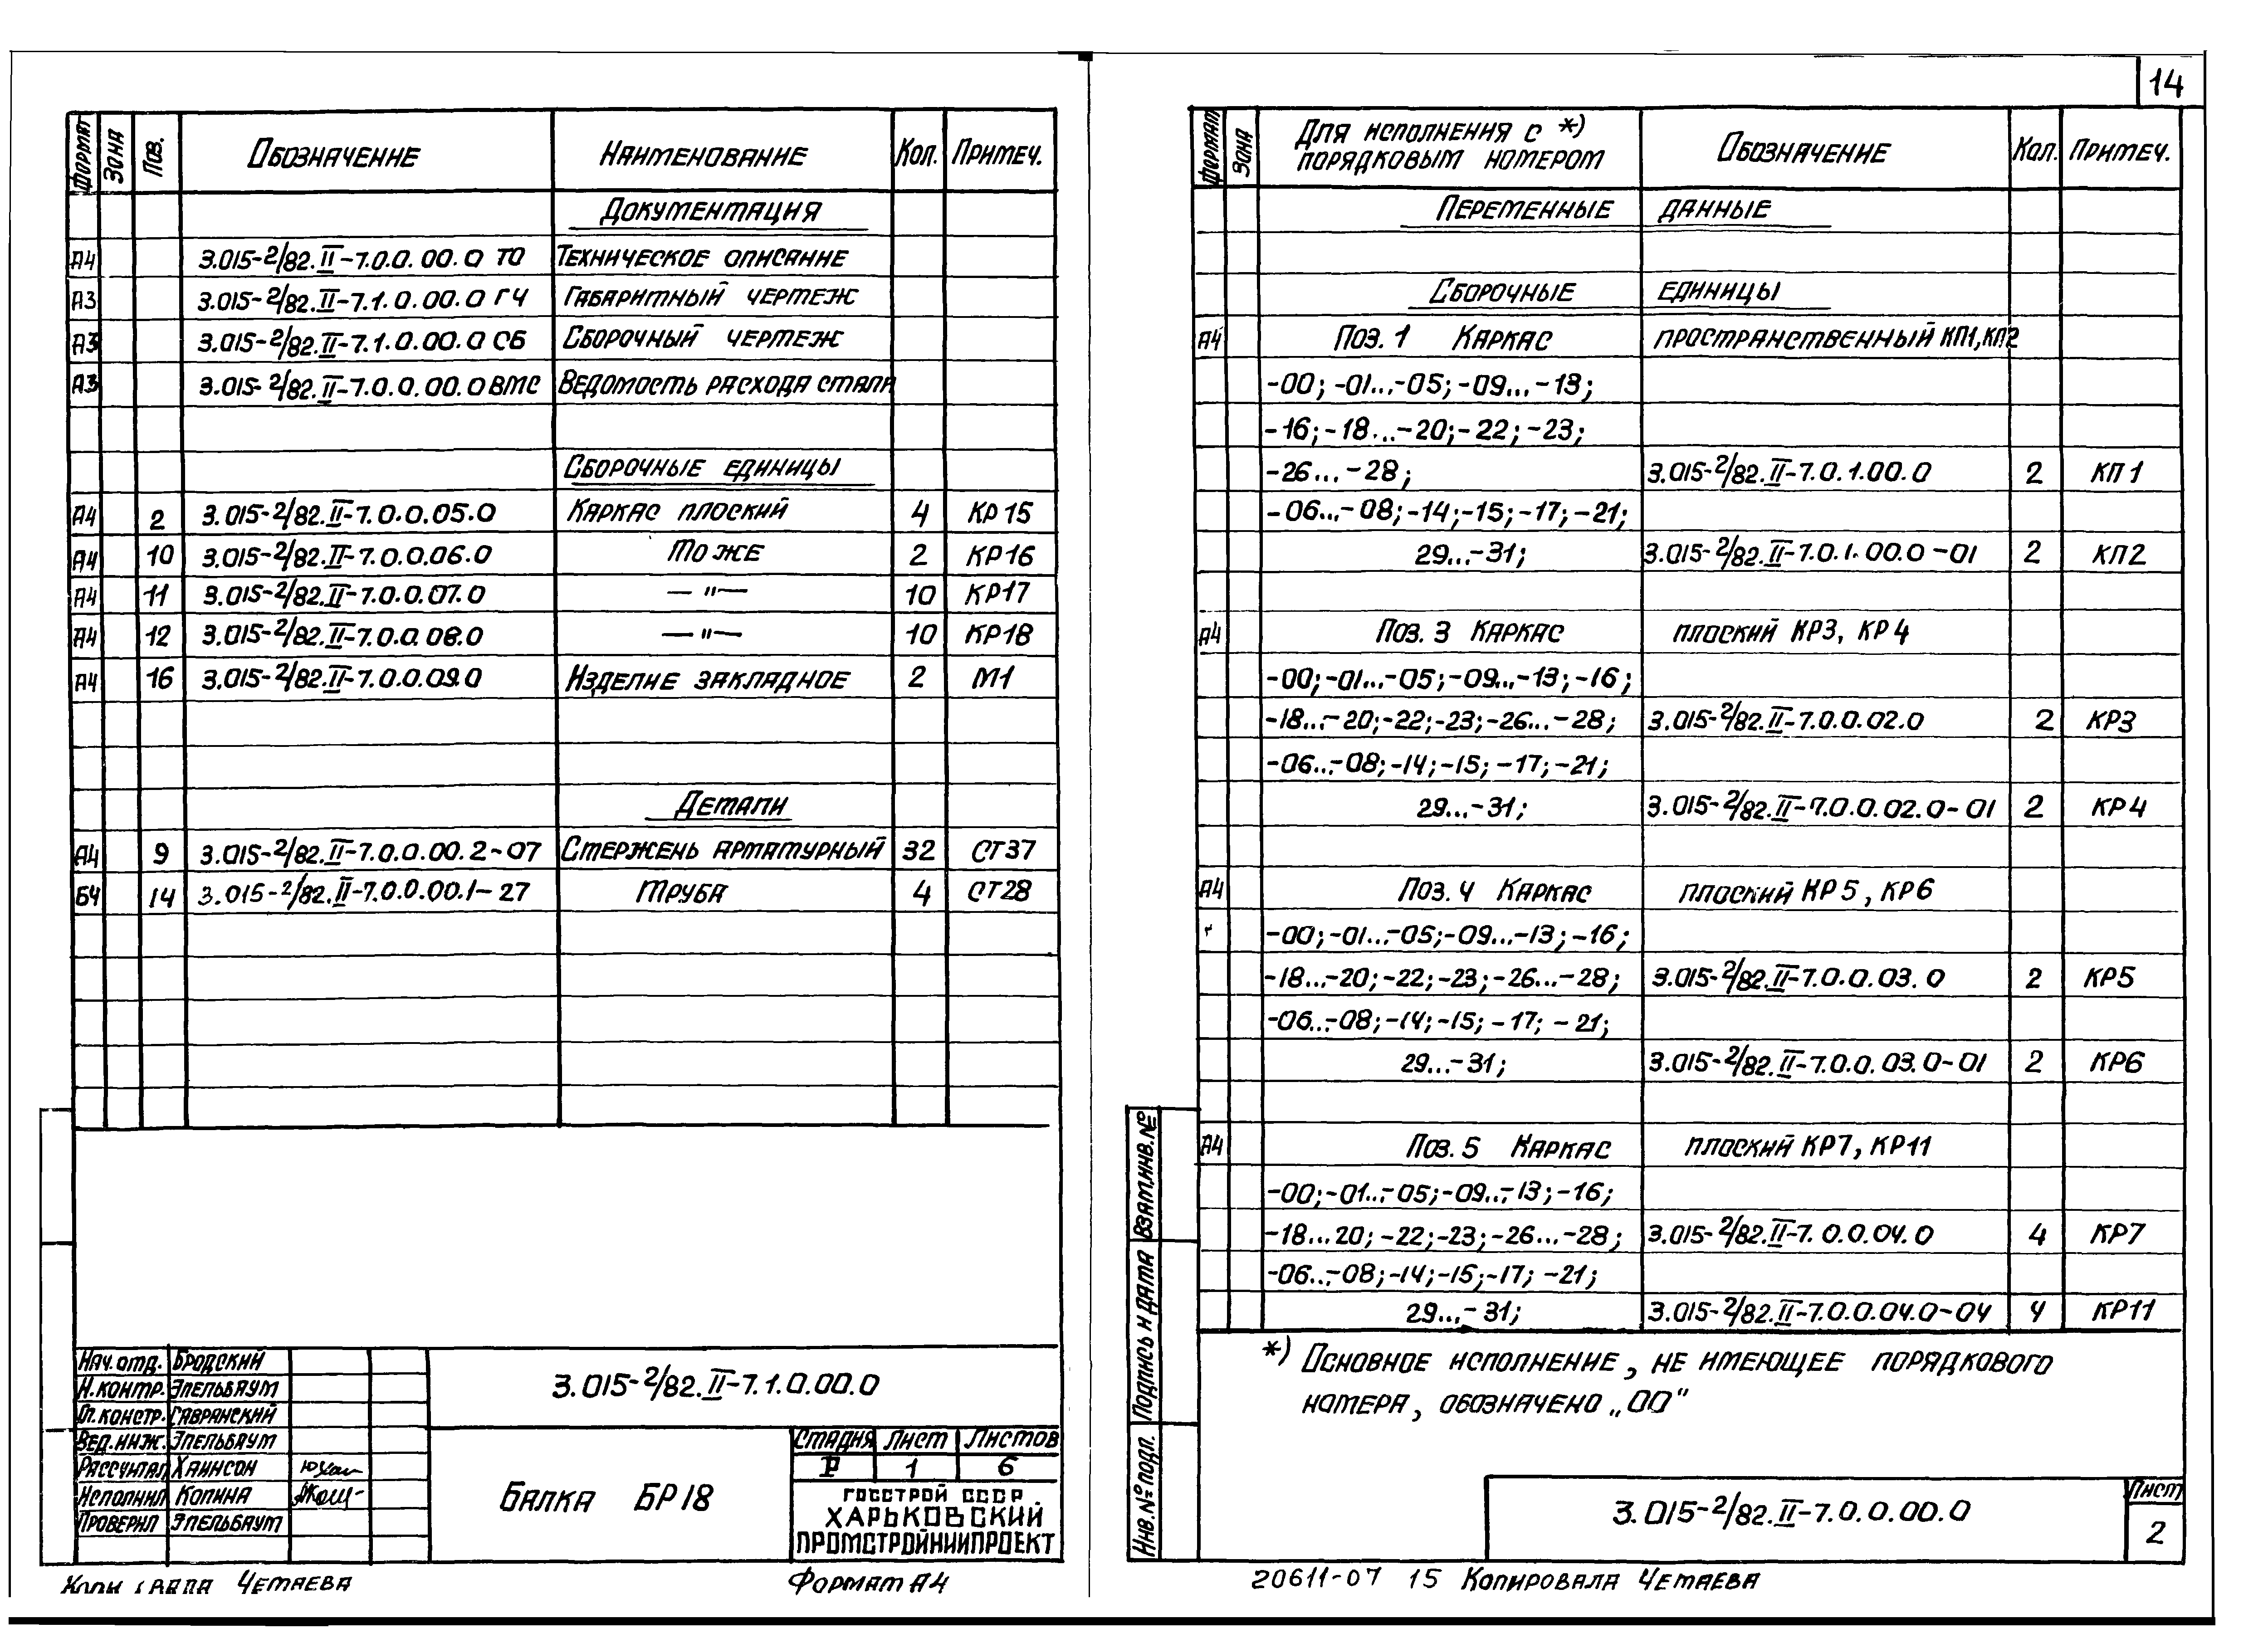 14
Формат Зона Поз. Обозначение Наименование Кол. Примеч.
Документация
А4 3.015-2/82.II-7.0.0.00.0 ТО Техническое описание
А3 3.015-2/82.II-7.1.0.00.0 ГЧ Габаритный чертеж
А3 3.015-2/82.II-7.1.0.00.0 СБ Сборочный чертеж
А3 3.015-2/82.II-7.0.0.00.0 ВМС Ведомость расхода стали
Сборочные единицы
А4 2 3.015-2/82.II-7.0.0.05.0 Каркас плоский 4 КР15
А4 10 3.015-2/82.II-7.0.0.06.0 То же 2 КР16
А4 11 3.015-2/82.II-7.0.0.07.0 — " — 10 КР17
А4 12 3.015-2/82.II-7.0.0.08.0 — " — 10 КР18
А4 16 3.015-2/82.II-7.0.0.09.0 Изделие закладное 2 М1
Детали
А4 9 3.015-2/82.II-7.0.0.00.2-07 Стержень арматурный 32 СТ37
Б4 14 3.015-2/82.II-7.0.0.00.1-27 Труба 4 СТ28
Нач.отд. Бродский
Н.контр. Эпельбаум
Гл.констр. Гавранский
Вед.инж. Эпельбаум
Рассчитал Хаинсон
Исполнил Копина
Проверил Эпельбаум
3.015-2/82.II-7.1.0.00.0
Балка БР18
Стадия Лист Листов
Р 1 6
ГОССТРОЙ СССР
ХАРЬКОВСКИЙ
ПРОМСТРОЙНИИПРОЕКТ
Четаева
Формат А4
Формат Зона Для исполнения с *) порядковым номером Обозначение Кол. Примеч.
Переменные данные
Сборочные единицы
А4 Поз. 1 Каркас пространственный КП1, КП2
-00; -01...-05; -09...-13;
-16; -18...-20; -22; -23;
-26...-28; 3.015-2/82.II-7.0.1.00.0 2 КП1
-06...-08; -14; -15; -17; -21;
29...-31; 3.015-2/82.II-7.0.1.00.0-01 2 КП2
А4 Поз. 3 Каркас плоский КР3, КР4
-00; -01...-05; -09...-13; -16;
-18...-20; -22; -23; -26...-28; 3.015-2/82.II-7.0.0.02.0 2 КР3
-06...-08; -14; -15; -17; -21;
29...-31; 3.015-2/82.II-7.0.0.02.0-01 2 КР4
А4 Поз. 4 Каркас плоский КР5, КР6
-00; -01...-05; -09...-13; -16;
-18...-20; -22; -23; -26...-28; 3.015-2/82.II-7.0.0.03.0 2 КР5
-06...-08; -14; -15; -17; -21;
29...-31; 3.015-2/82.II-7.0.0.03.0-01 2 КР6
А4 Поз. 5 Каркас плоский КР7, КР11
-00; -01...-05; -09...-13; -16;
-18...20; -22; -23; -26...-28; 3.015-2/82.II-7.0.0.04.0 4 КР7
-06...-08; -14; -15; -17; -21;
29...-31; 3.015-2/82.II-7.0.0.04.0-04 4 КР11
*) Основное исполнение, не имеющее порядкового
номера, обозначено „00"
Взам.инв.№
Подпись и дата
Инв.№ подл.
3.015-2/82.II-7.0.0.00.0
Лист
2
20611-07 15 Копировала Четаева